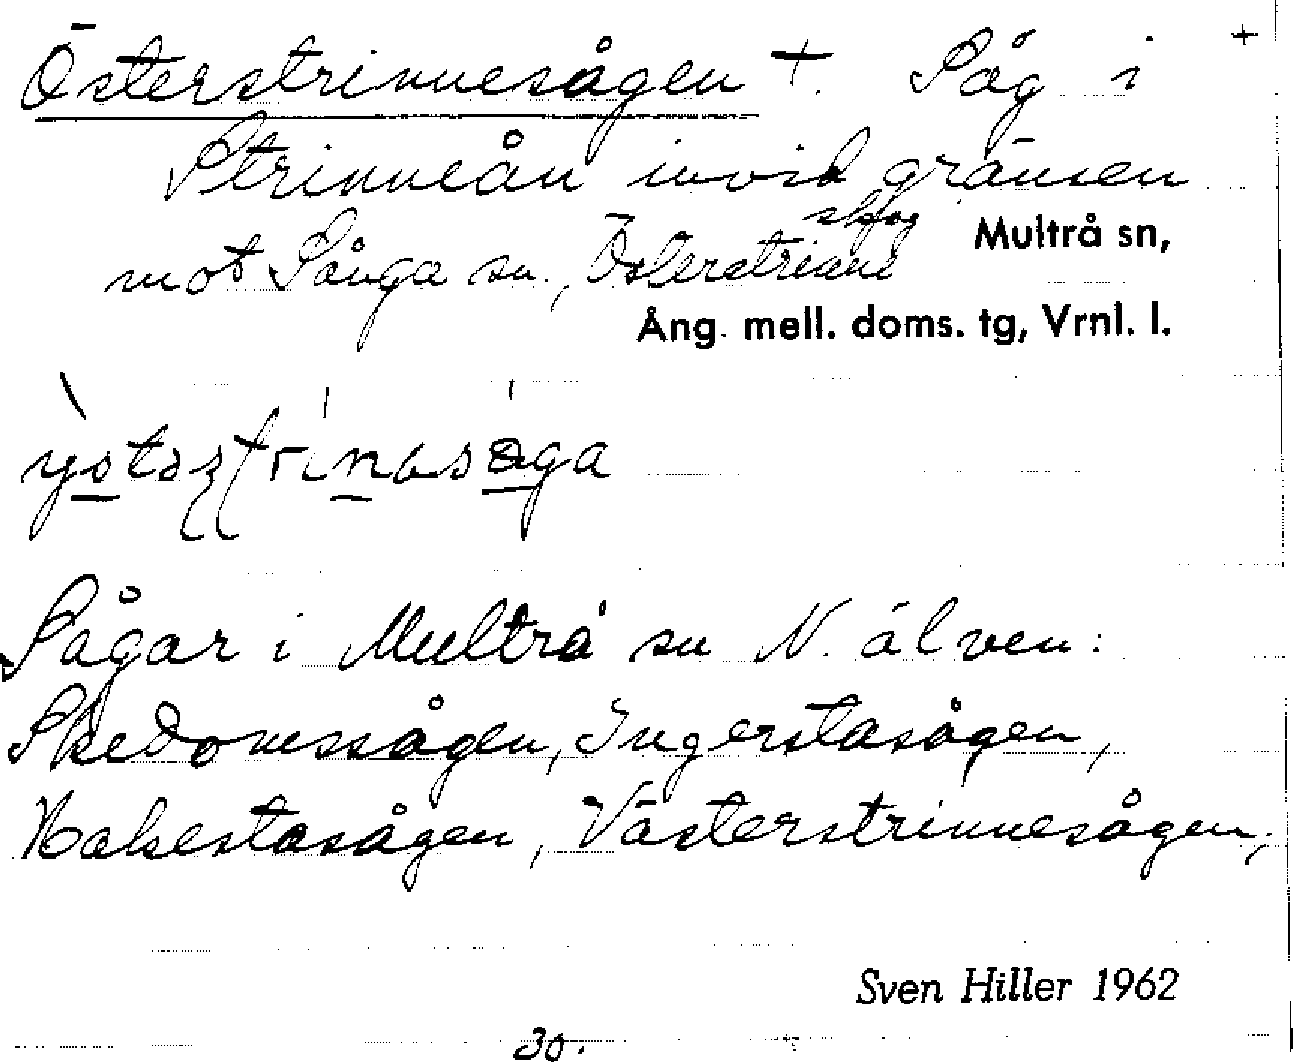 Österstrinnesågen +. Såg i +
Strinneån invid gränsen
mot Sånga sn., Österstrinne
Multrå sn,
Ång. mell. doms. tg, Vrnl. l.
Sågar i Multrå sn N. älven:
Skedomssågen, Ingerstasågen,
Hakestasågen, Västerstrinnesågen,
Sven Hiller 1962
30.